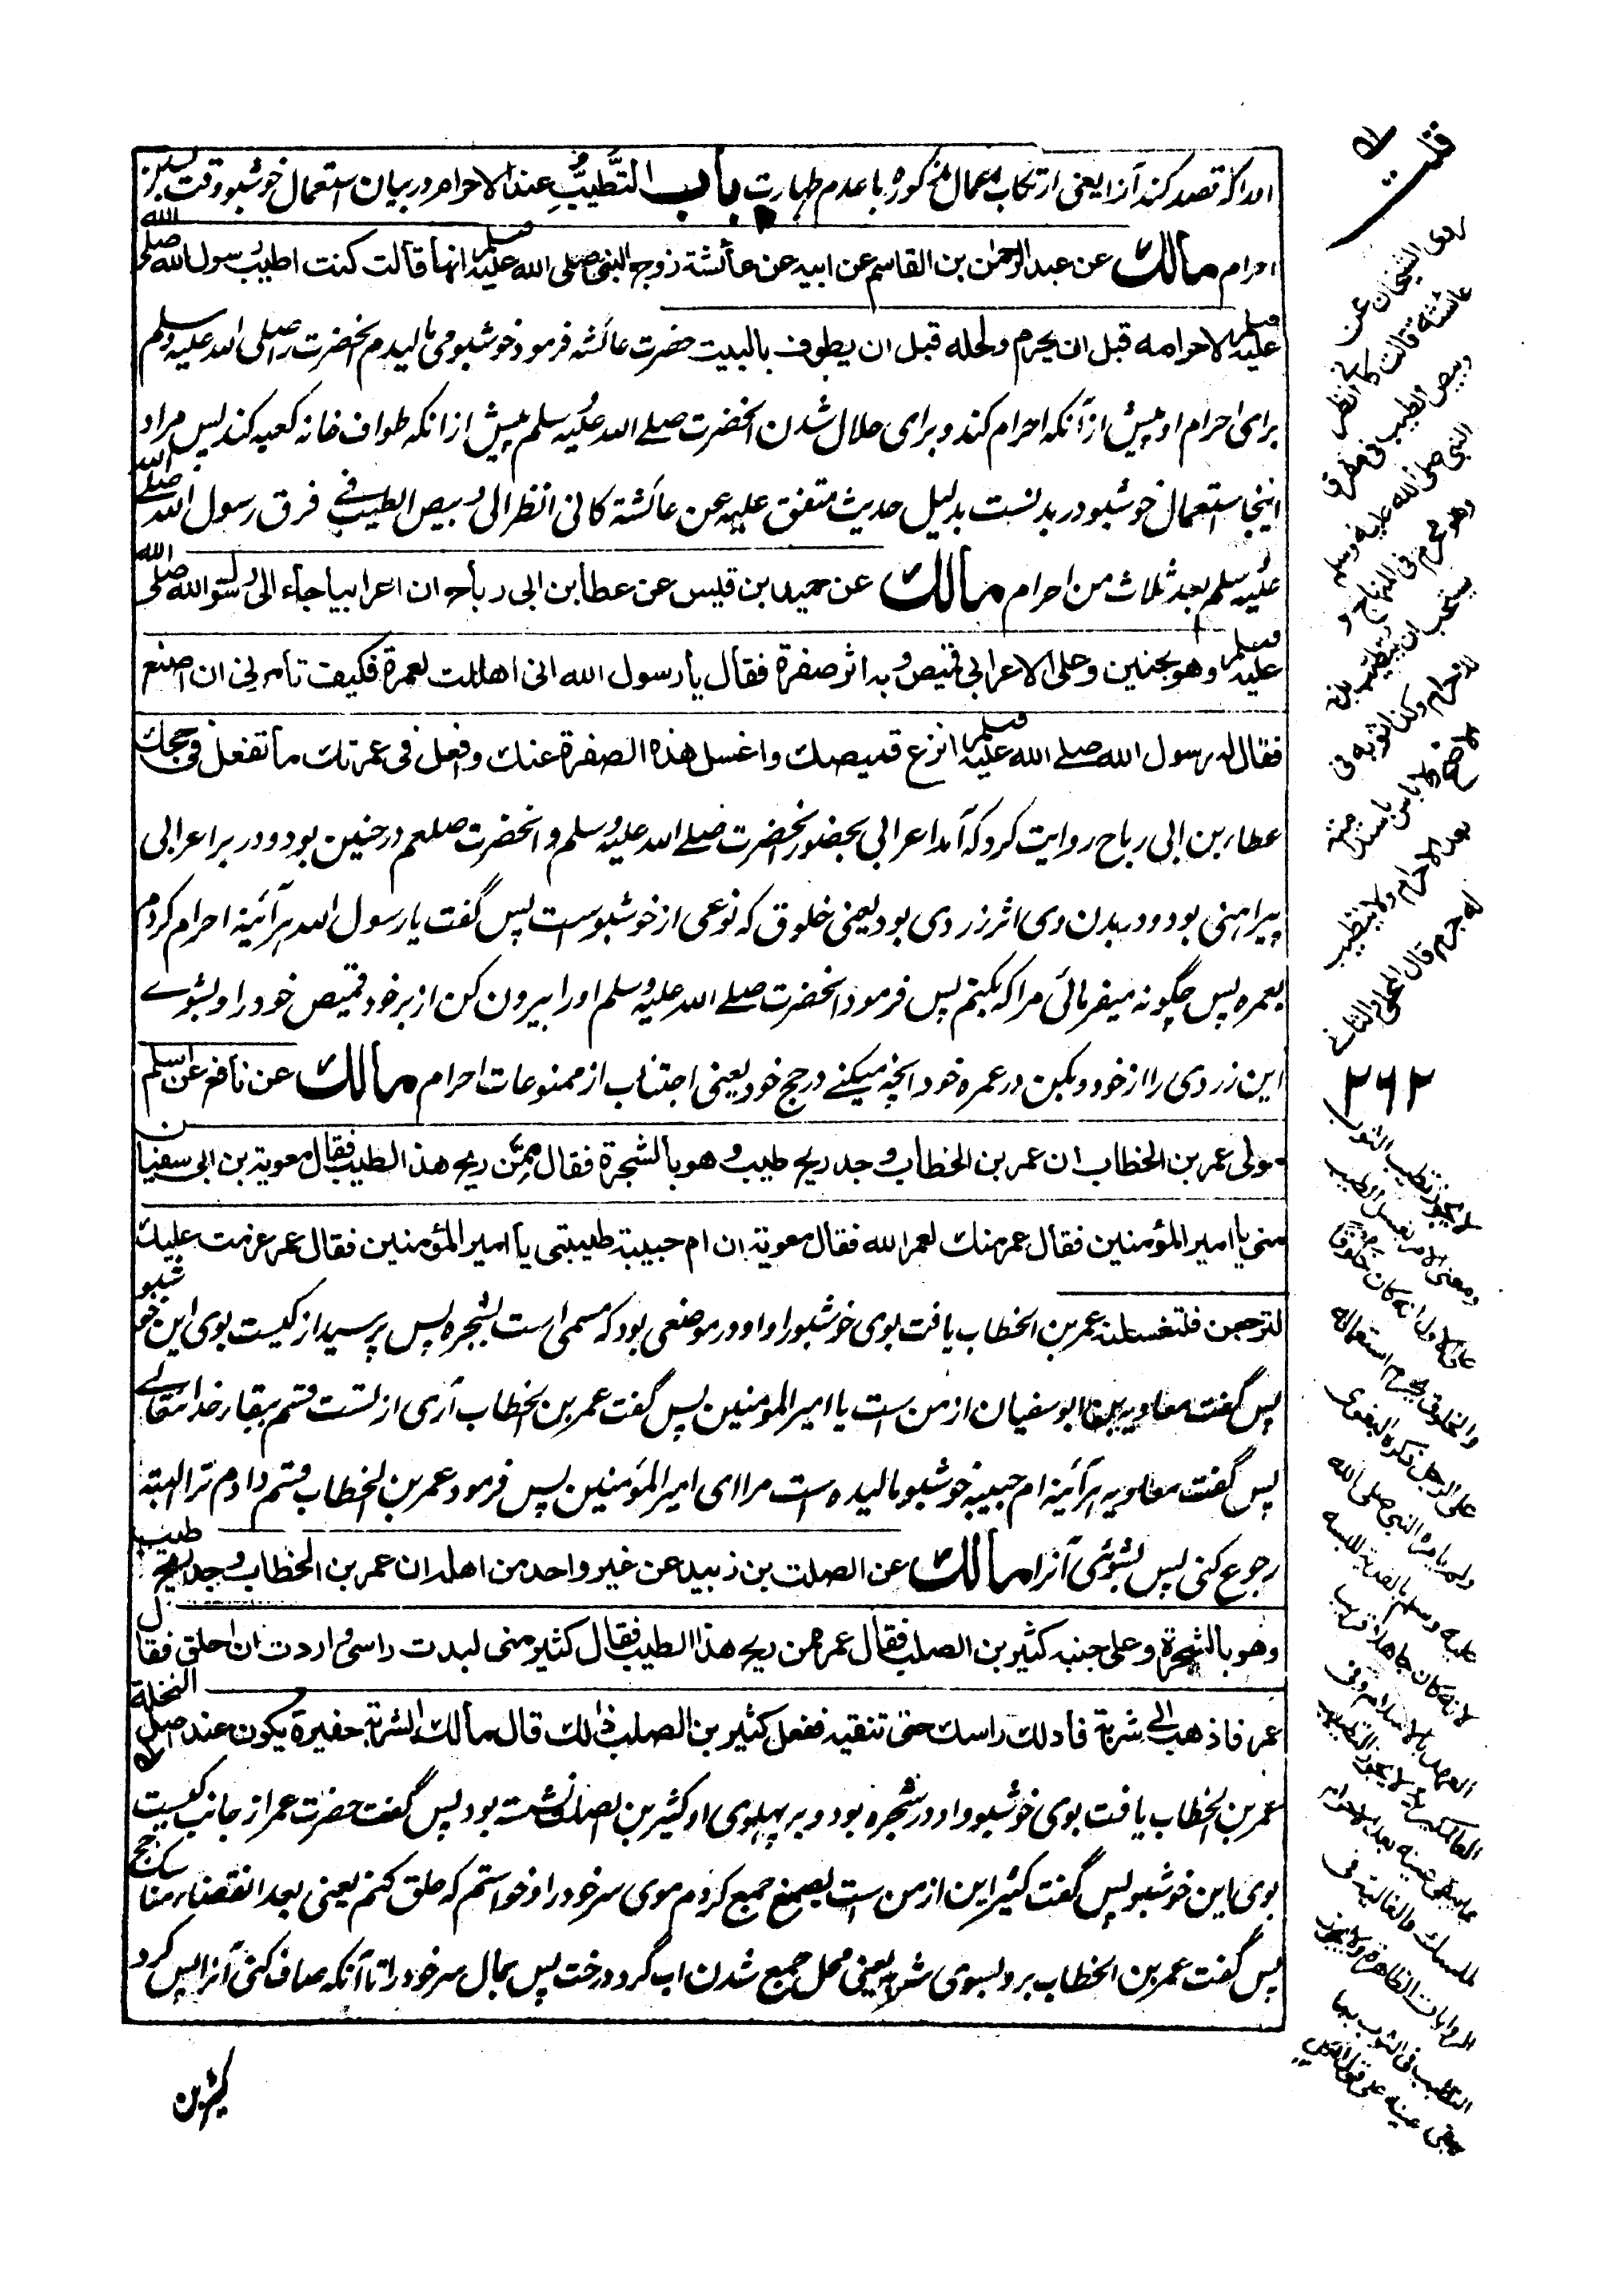 امدا که قصد کند آنرا یعنی ارتکاب اعمال مذکوره با عدم طهارت باب التَّطيُّبِ عند الاحرام در بیان استعمال خوشبو وقت بستن
احرام مالك عن عبد الرحمن بن القاسم عن ابيه عن عائشة زوجه النبي صلى الله عليه وسلم انها قالت كنت اطيب رسول الله صلى الله
عليه وسلم لاحرامه قبل ان يحرم ولحله قبل ان يطوف بالبيت حضرت عائشه فرمود خوشبو می مالیدم آنحضرت را صلی الله علیه وسلم
برای احرام او پیش از آنکه احرام کند و برای حلال شدن آنحضرت صلے الله علیه وسلم پیش از انکه طواف خانه کعبه کند پس مراد
اینجا استعمال خوشبو در بدنست بدلیل حدیث متفق علیه عن عائشة كانى انظر الى وبيص الطيب فے فرق رسول الله صلے الله
علیه وسلم بعد ثلاث من احرام مالك عن حميد بن قيس عن عطا بن ابى رباح ان اعرابيا جاء الى رسول الله صلى الله
عليه وسلم وهو بحنين وعلى الاعرابي قميص وبه اثر صفرة فقال يا رسول الله انى اهللت لعمرة فكيف تأمرنى ان اصنع
فقال له رسول الله صلے الله عليه وسلم انزع قميصك واغسل هذه الصفرة عنك وافعل فى عمرتك ما تفعل فى حجك
عطاء بن ابی رباح روایت کرد که آمد اعرابی بحضور آنحضرت صلے الله علیه وسلم و آنحضرت صلعم در حنین بود و در بر اعرابی
پیراهنی بود و در بدن وی اثر زردی بود یعنی خلوق که نوعی از خوشبوست پس گفت یا رسول الله هرآئینه احرام کردم
بعمره پس چگونه میفرمائی مرا که بکنم پس فرمود آنحضرت صلے الله علیه وسلم او را بیرون کن از بر خود قمیص خود را و بشوے
این زردی را از خود و بکن در عمره خود آنچه میکنے در حج خود یعنی اجتناب از ممنوعات احرام مالك عن نافع عن اسلم
مولى عمر بن الخطاب ان عمر بن الخطاب وجد ريح طيب وهو بالشجرة فقال ممن ريح هذا الطيب فقال معوية بن ابى سفيان
منى يا امير المؤمنين فقال عمر منك لعمر الله فقال معوية ان ام حبيبة طيبتنى يا امير المؤمنين فقال عمر عزمت عليك
لترجعن فلتغسلنه عمر بن الخطاب یافت بوی خوشبو را و او در موضعی بود که مسمی است بشجره پس پرسید از کیست بوی این خوشبو
پس گفت معاویه بن ابو سفیان از من است یا امیر المومنین پس گفت عمر بن الخطاب آری از تست قسم ببقاء خدا تعالے
پس گفت معاویه هرآئینه ام حبیبه خوشبو مالیده است مرا ای امیر المؤمنین پس فرمود عمر بن الخطاب قسم دادم ترا البته
رجوع کنی پس بشوئی آنرا مالك عن الصلت بن زبيد عن غير واحد من اهله ان عمر بن الخطاب وجد ريح طيب
وهو بالشجرة وعلى جنبه كثير بن الصلب فقال عمر ممن ريح هذا الطيب فقال كثير منى لبدت راسى واردت ان احلق فقال
عمر فاذهب الے شربة فادلك راسك حتى تنقيه ففعل كثير بن الصلب ذلك قال مالك الشربة حفيرة يكون عند اصل النخلة
عمر بن الخطاب یافت بوی خوشبو و او در شجره بود و بر پهلوی او کثیر بن الصلت نشسته بود پس گفت حضرت عمر از جانب کیست
بوی این خوشبو پس گفت کثیر این از من است بصمغ جمع کردم موی سر خود را و خواستم که حلق کنم یعنی بعد انقضاء مناسک حج
پس گفت عمر بن الخطاب برو بسوی شربه یعنی محل جمع شدن اب گرد درخت پس بمال سر خود را تا آنکه صاف کنی آنرا پس کرد
کثیر بن
قلت
روى الشيخان عن
عائشة قالت كانى انظر
وبيص الطيب فى مفرق
النبى صلى الله عليه وسلم
وهو محرم
يستحب ان يتطيب بدنه
للاحرام وكذا ثوبه فى
الاصح ولا باس باستدامته
بعد الاحرام
٢٦٢
لا يجوز تطييب الثوب
ومعنى الامر بغسل الطيب
على الاول انه كان خلوقا
والخلوق يحرم استعماله
على الرجل ذكره البغوى
ولم يامره النبى صلى الله
عليه وسلم بالفدية للبسه
لانه كان جاهلا قريب
العهد بالاسلام وفى
العالمگيرية لا يجوز التطيب
بما يبقى عينه بعد الاحرام
كالمسك والغالية فى
الروايات الظاهرة ولا يجوز
التطيب فى الثوب بما
يبقى عينه على قول الكل